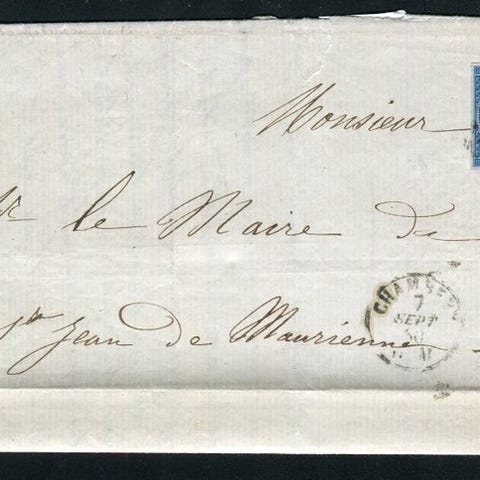 Monsieur
le Maire de
St Jean de Maurienne
CHAMBERY
7
SEPT